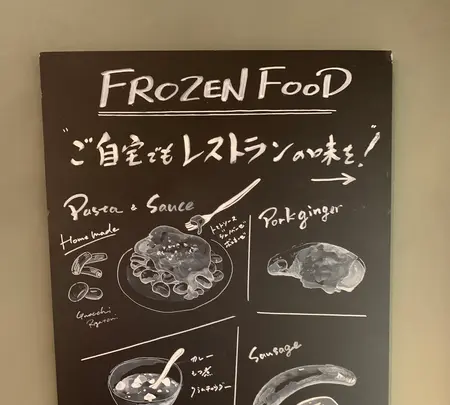 FROZEN FOOD
"ご自宅でもレストランの味を!"
Pasta & Sauce
Home made
トマトソース
ボロネーゼ
Gnocchi
Rigatoni
Pork ginger
カレー
クラムチャウダー
Sausage